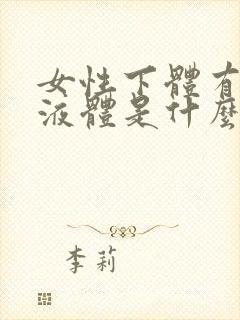 女性下體有
液體是什麼
李莉